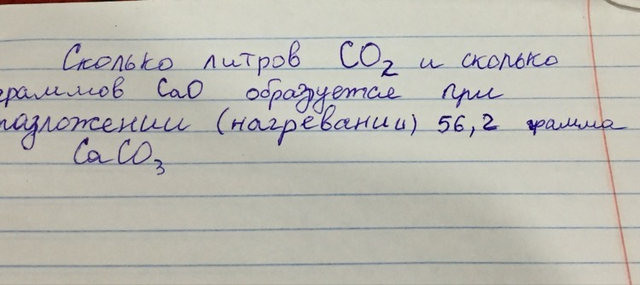 Сколько литров CO2 и сколько
граммов CaO образуется при
разложении (нагревании) 56,2 грамма
CaCO3